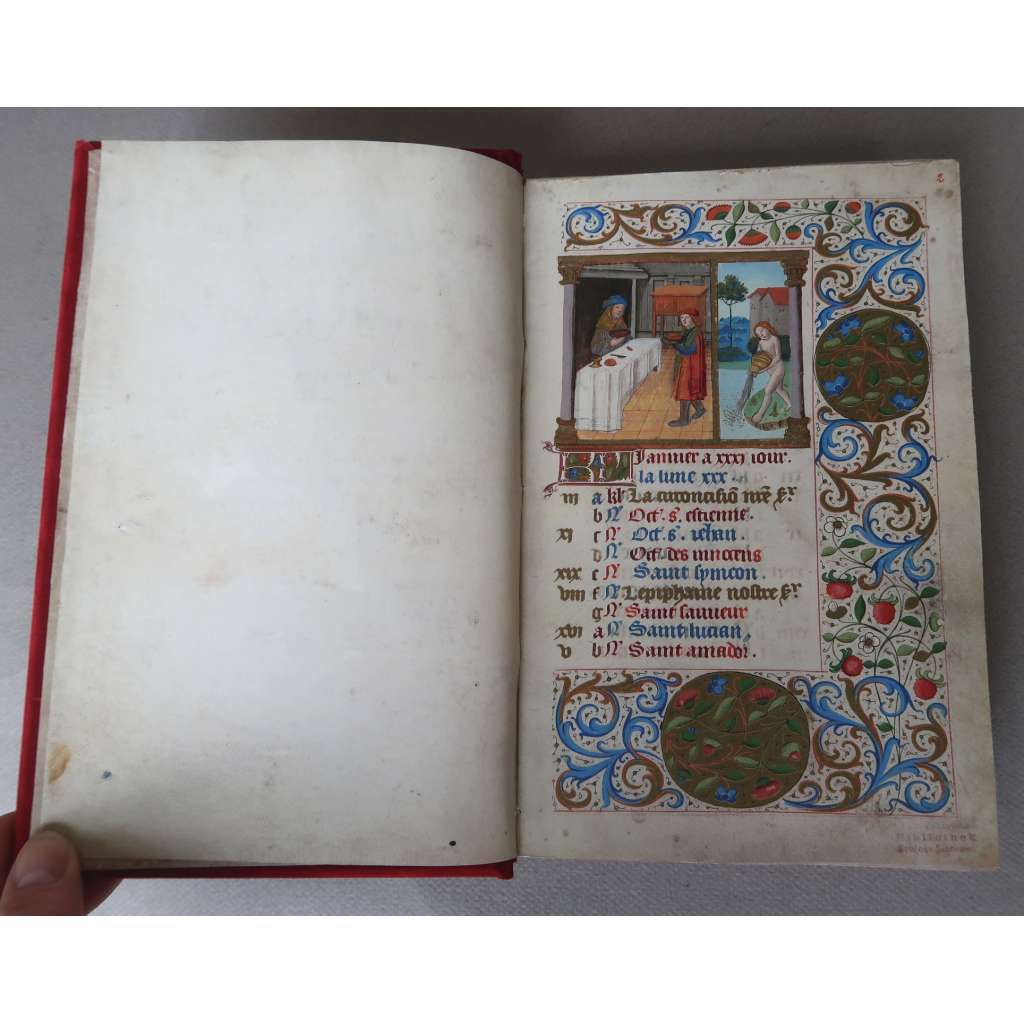 2
KL Januier a xxxj iour.
la lune xxx
iii a kl La circoncisiō nr̄e sr̄
b N Oct. s. estienne.
xj c N Oct. s. iehan.
d N Oct. des innocens
xix e N Saint symeon.
viii f N Lepiphanie nostre sr̄
g N Saint sauueur
xvi a N Saint lucian,
v b N Saint amador.
Bibliothek